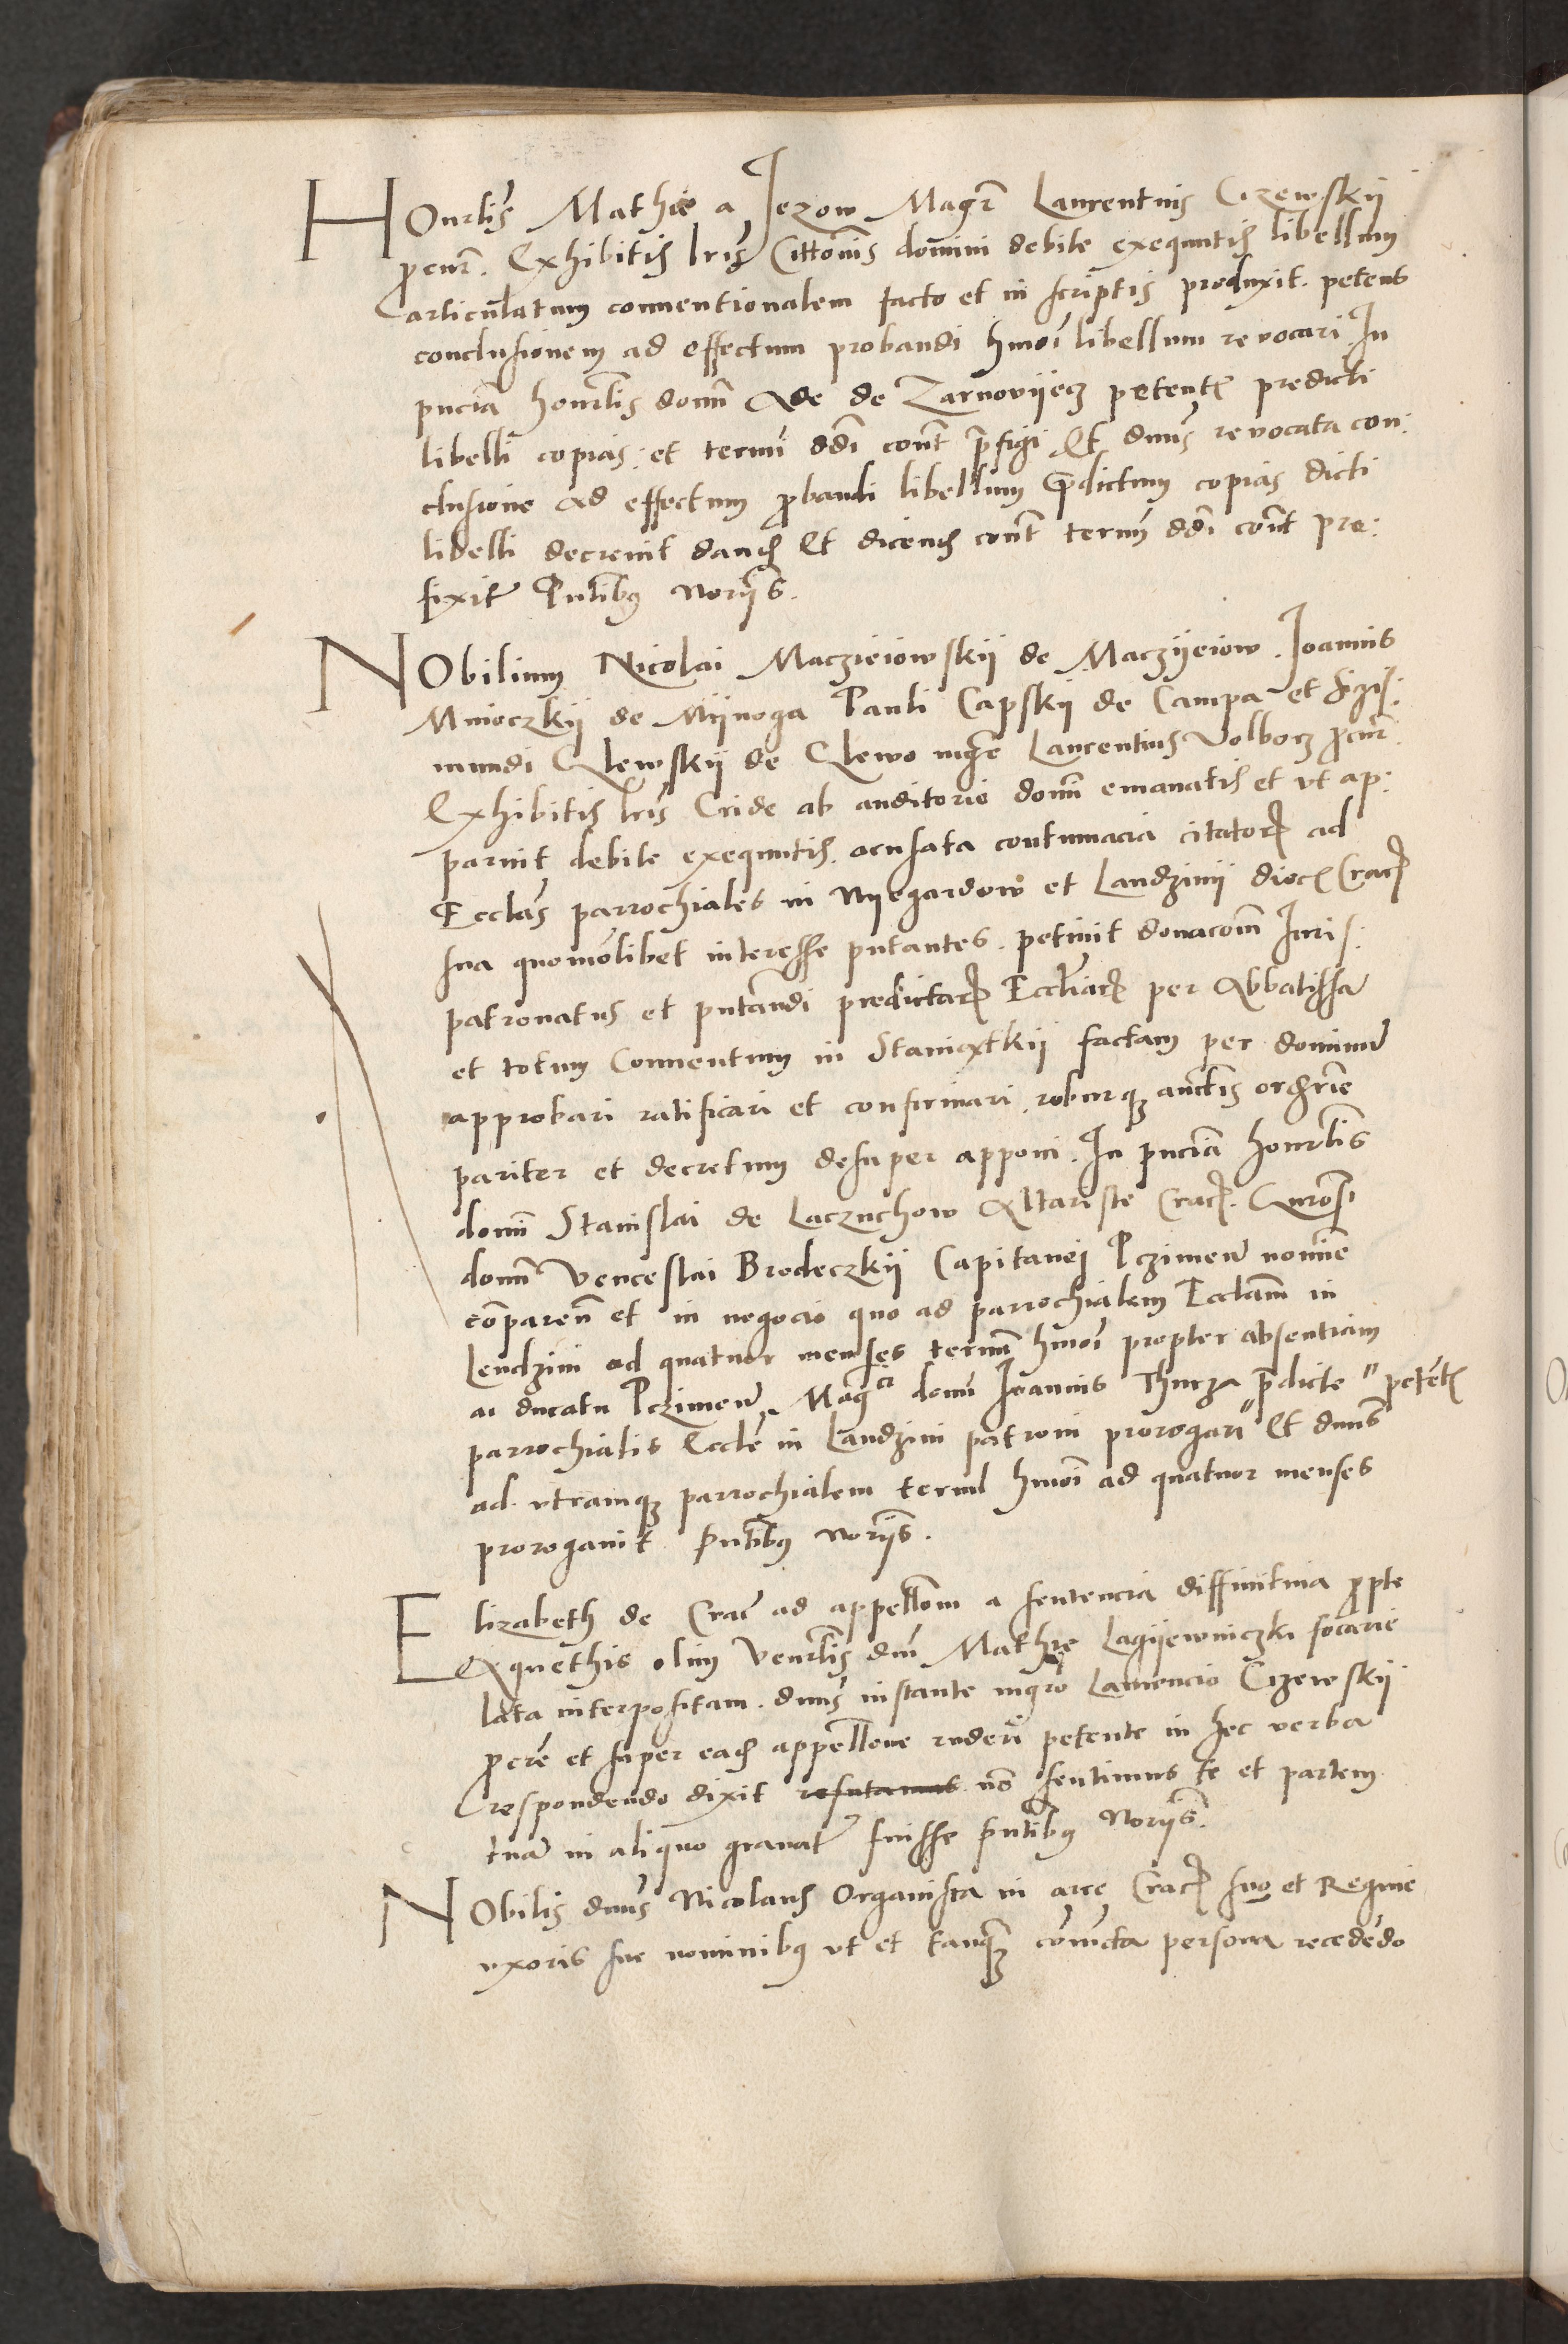 HOnrlis Mathie a Jezow Magr Laurentius Cizewskij
procur. Exhibitis lris Cittonis domini debite exequutis libellum
articulatum conventionalem facto et in scriptis produxit. petens
conclusionem ad effectum probandi hmoi libellum revocari. In
pncia honrlis domi Ade de Zarnovijecz petentis predicti
libelli copias: et termi ddi cont prefigi Et dnus revocata con:
clusione ad effectum probandi libellum predictum copias dicti
libelli decrevit dandas Et dicendis cont termi ddi cont pre:
fixit Pntibus Norijs.
NObilium Nicolai Maczieiowskij de Maczijeiow. Joannis
Mnioczkij de Mijnoga Pauli Capskij de Campa et Sigis:
mundi Chlewskij de Chlewo mgr Laurentius Volborz procur.
Exhibitis lris Cride ab auditorio domi emanatis et ut ap:
paruit debite exequutis. acusata contumacia citatorum ad
Ecclas parrochiales in Nijegardow et Landzinij dioc Crac
sua quomolibet interesse putantes. petivit donacom Juris:
patronatus et pntandi predictarum Eccliarum per Abbatissa
et totum Conventum in Staniextkij factam per dominum
approbari ratificari et confirmari. roburque auctis ordrie
pariter et decretum desuper apponi. In pncia honrlis
domi Stanislai de Laczuchow Altariste Crac. Gnrosi
domi Venceslai Brodeczkij Capitanei Pczimen nomine
comparen et in negocio quo ad parrochialem Ecclam in
Lendzini ad quatuor menses termi hmoi propter absentiam
a ducatu Pczimen. Magci domi Joannis Thurzo predicte " petentis
parrochialis Eccle in Landzini patroni prorogari " Et dnus
ad utramque parrochialem termi hmoi ad quatuor menses
prorogavit Pntibus Norijs.
Elizabeth de Crac ad appellom a sentencia diffinitiva propte
Agnethis olim Venrlis dni Mathie Lagijewniczki focarie
lata interpositam. dnus instante mgro Laurencio Cizewskij
procre et super eadem appellone rnderi petente in hec verba
respondendo dixit refutamus no sentimus te et partem
tuam in aliquo gravatam fuisse pntibus Norijs.
NObilis dnus Nicolaus Organista in arce Crac suo et Regine
uxoris sue nominibus ut et tanquam coniuncta persona recedendo